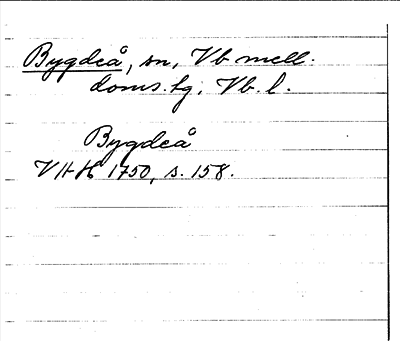 Bygdeå, sn, Vb mell.
doms. tg. Vb. l.
Bygdeå
VHH 1750, s. 158.